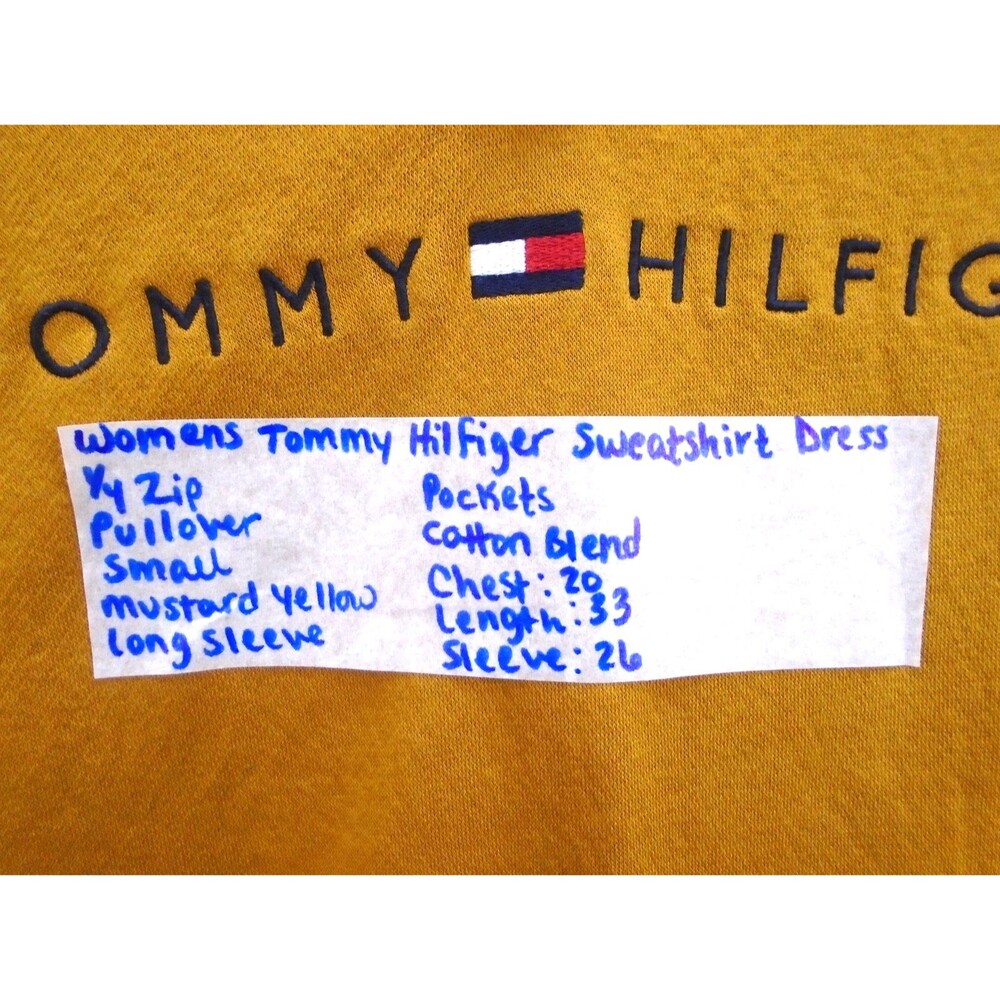 OMMY HILFIG
Womens Tommy Hilfiger Sweatshirt Dress
1/4 Zip
Pullover
Small
Mustard Yellow
Long Sleeve
Pockets
Cotton Blend
Chest: 20
Length: 33
Sleeve: 26